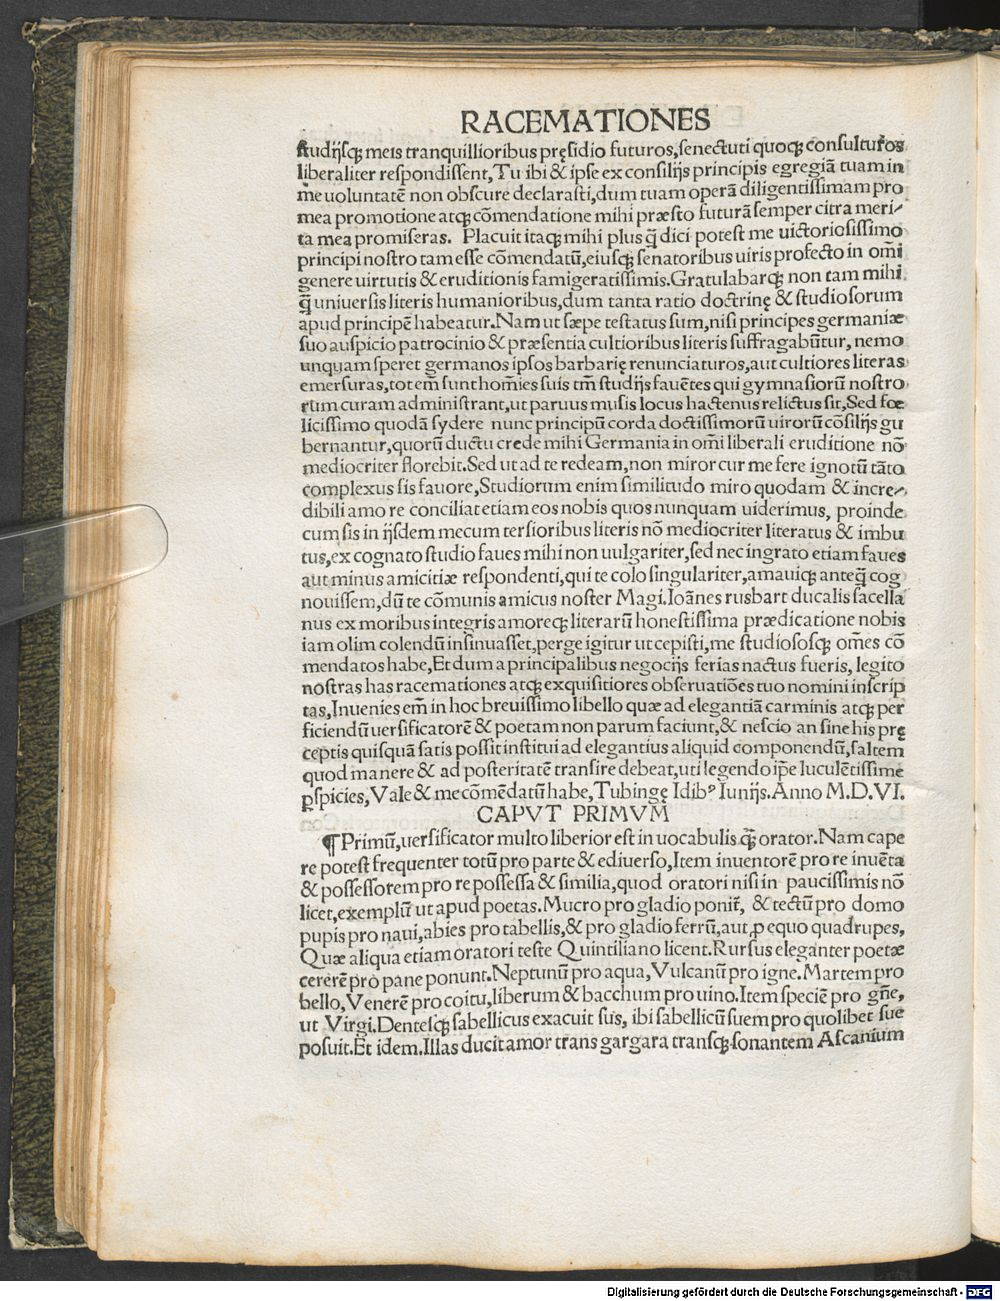 RACEMATIONES
ſtudijſqꝫ meis tranquillioribus pręſidio futuros, ſenectuti quoqꝫ conſulturos
liberaliter reſpondiſſent, Tu ibi & ipſe ex conſilijs principis egregiā tuam in
me uoluntatē non obſcure declaraſti, dum tuam operā diligentiſſimam pro
mea promotione atqꝫ cōmendatione mihi præſto futurā ſemper citra meri⸗
ta mea promiſeras. Placuit itaqꝫ mihi plus q̄ dici poteſt me uictorioſiſſimo
principi noſtro tam eſſe cōmendatū, eiuſqꝫ ſenatoribus uiris profecto in om̄i
genere uirtutis & eruditionis famigeratiſſimis. Gratulabarqꝫ non tam mihi
q̄ uniuerſis literis humanioribus, dum tanta ratio doctrinę & ſtudioſorum
apud principē habeatur. Nam ut ſæpe teſtatus ſum, niſi principes germaniæ
ſuo auſpicio patrocinio & præſentia cultioribus literis ſuffragabūtur, nemo
unquam ſperet germanos ipſos barbarię renunciaturos, aut cultiores literas
emerſuras, tot em̄ ſunt homīes ſuis tm̄ ſtudijs fauētes qui gymnaſiorū noſtro
rum curam adminiſtrant, ut paruus muſis locus hactenus relictus ſit, Sed fœ
liciſſimo quodā ſydere nunc principū corda doctiſſimorū uirorū cōſilijs gu
bernantur, quorū ductu crede mihi Germania in om̄i liberali eruditione nō
mediocriter florebit. Sed ut ad te redeam, non miror cur me fere ignotū tāto
complexus ſis fauore, Studiorum enim ſimilitudo miro quodam & incre⸗
dibili amore conciliat etiam eos nobis quos nunquam uiderimus, proinde
cum ſis in ijſdem mecum terſioribus literis nō mediocriter literatus & imbu
tus, ex cognato ſtudio faues mihi non uulgariter, ſed nec ingrato etiam faues
aut minus amicitiæ reſpondenti, qui te colo ſingulariter, amauiqꝫ anteq̄ cog
nouiſſem, dū te cōmunis amicus noſter Magi. Ioānes rusbart ducalis ſacella
nus ex moribus integris amoreqꝫ literarū honeſtiſſima prædicatione nobis
iam olim colendū inſinuaſſet, perge igitur ut cepiſti, me ſtudioſoſqꝫ om̄es cō
mendatos habe, Et dum a principalibus negocijs ferias nactus fueris, legito
noſtras has racemationes atqꝫ exquiſitiores obſeruatiōes tuo nomini inſcrip
tas, Inuenies em̄ in hoc breuiſſimo libello quæ ad elegantiā carminis atqꝫ per
ficiendū uerſificatorē & poetam non parum faciunt, & neſcio an ſine his prę
ceptis quiſquā ſatis poſſit inſtitui ad elegantius aliquid componendū, ſaltem
quod manere & ad poſteritatē tranſire debeat, uti legendo ip̄e luculētiſſime
ꝑſpicies, Vale & me cōmēdatū habe, Tubingę Idibꝰ Iunijs. Anno M.D.VI.
CAPVT PRIMVM
¶ Primū, uerſificator multo liberior eſt in uocabulis q̄ orator. Nam cape
re poteſt frequenter totū pro parte & ediuerſo, Item inuentorē pro re inuēta
& poſſeſſorem pro re poſſeſſa & ſimilia, quod oratori niſi in pauciſſimis nō
licet, exemplū ut apud poetas. Mucro pro gladio ponit᷑, & tectū pro domo
pupis pro naui, abies pro tabellis, & pro gladio ferrū, aut ꝓ equo quadrupes,
Quæ aliqua etiam oratori teſte Quintiliano licent. Rurſus eleganter poetæ
cererē pro pane ponunt. Neptunū pro aqua, Vulcanū pro igne. Martem pro
bello, Venerē pro coitu, liberum & bacchum pro uino. Item ſpeciē pro gn̄e,
ut Virgi. Denteſqꝫ ſabellicus exacuit ſus, ibi ſabellicū ſuem pro quolibet ſue
poſuit. Et idem. Illas ducit amor trans gargara tranſqꝫ ſonantem Aſcanium
Digitalisierung gefördert durch die Deutsche Forschungsgemeinschaft - DFG